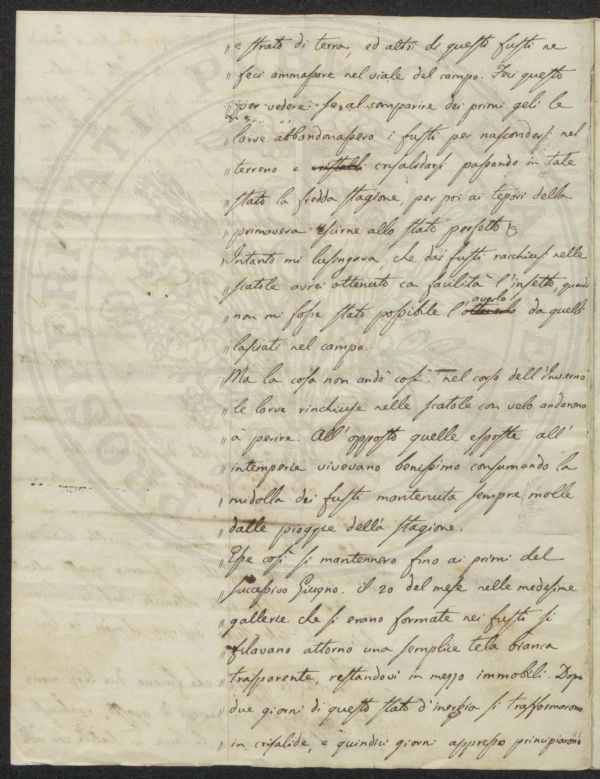 " e strato di terra, ed altri di questi fusti ne
" feci ammassare nel viale del campo. Feci questo
" per vedere se al comparire dei primi geli le
" larve abbandonassero i fusti per nascondersi nel
" terreno e crisalidarsi passando in tale
" stato la fredda stagione, per poi ai tepori della
" primavera escirne allo stato perfetto
" Intanto mi lusingava che dai fusti racchiusi nelle
" scatole avrei ottenuto con facilità l'insetto, quando
" non mi fosse stato possibile l'averlo da quelli
" lasciati nel campo.
" Ma la cosa non andò così. nel corso dell'Inverno
" le larve rinchiuse nelle scatole con velo andarono
" a perire. All'opposto quelle esposte all'
" intemperie vivevano benissimo consumando la
" midolla dei fusti mantenuta sempre molle
" dalle pioggie della stagione.
" Esse così si mantennero fino ai primi del
" successivo Giugno. il 20 del mese nelle medesime
" gallerie che si erano formate nei fusti si
" filavano attorno una semplice tela bianca
" trasparente, restandovi in mezzo immobili. Dopo
" due giorni di questo stato d'inerzia si trasformarono
" in crisalide, e quindici giorni appresso principiarono
PROSPERITATI PUBLICAE